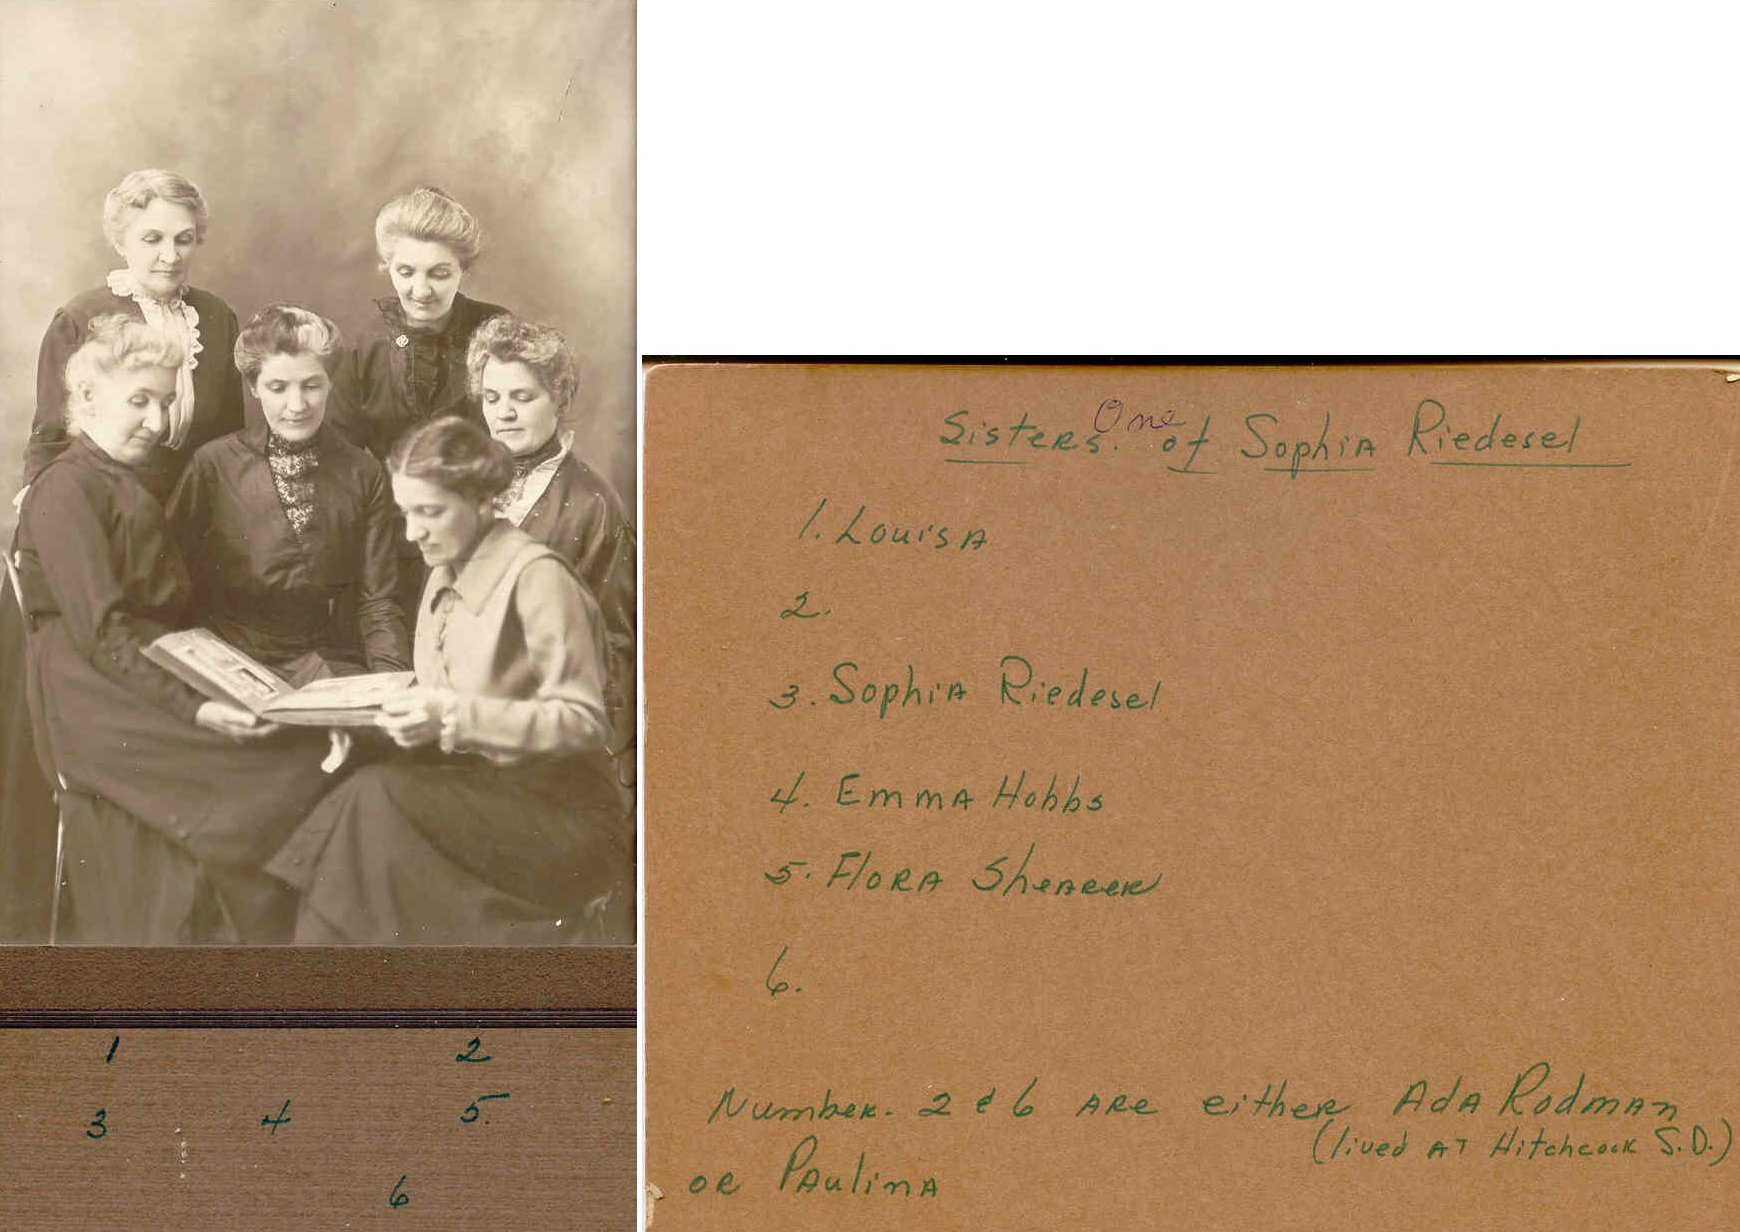 1 2
3 4 5.
6
Sisters. One of Sophia Riedesel
1. Louisa
2.
3. Sophia Riedesel
4. Emma Hobbs
5. Flora Shearer
6.
Number. 2 & 6 are either Ada Rodman
(lived at Hitchcock S.D.)
or Paulina